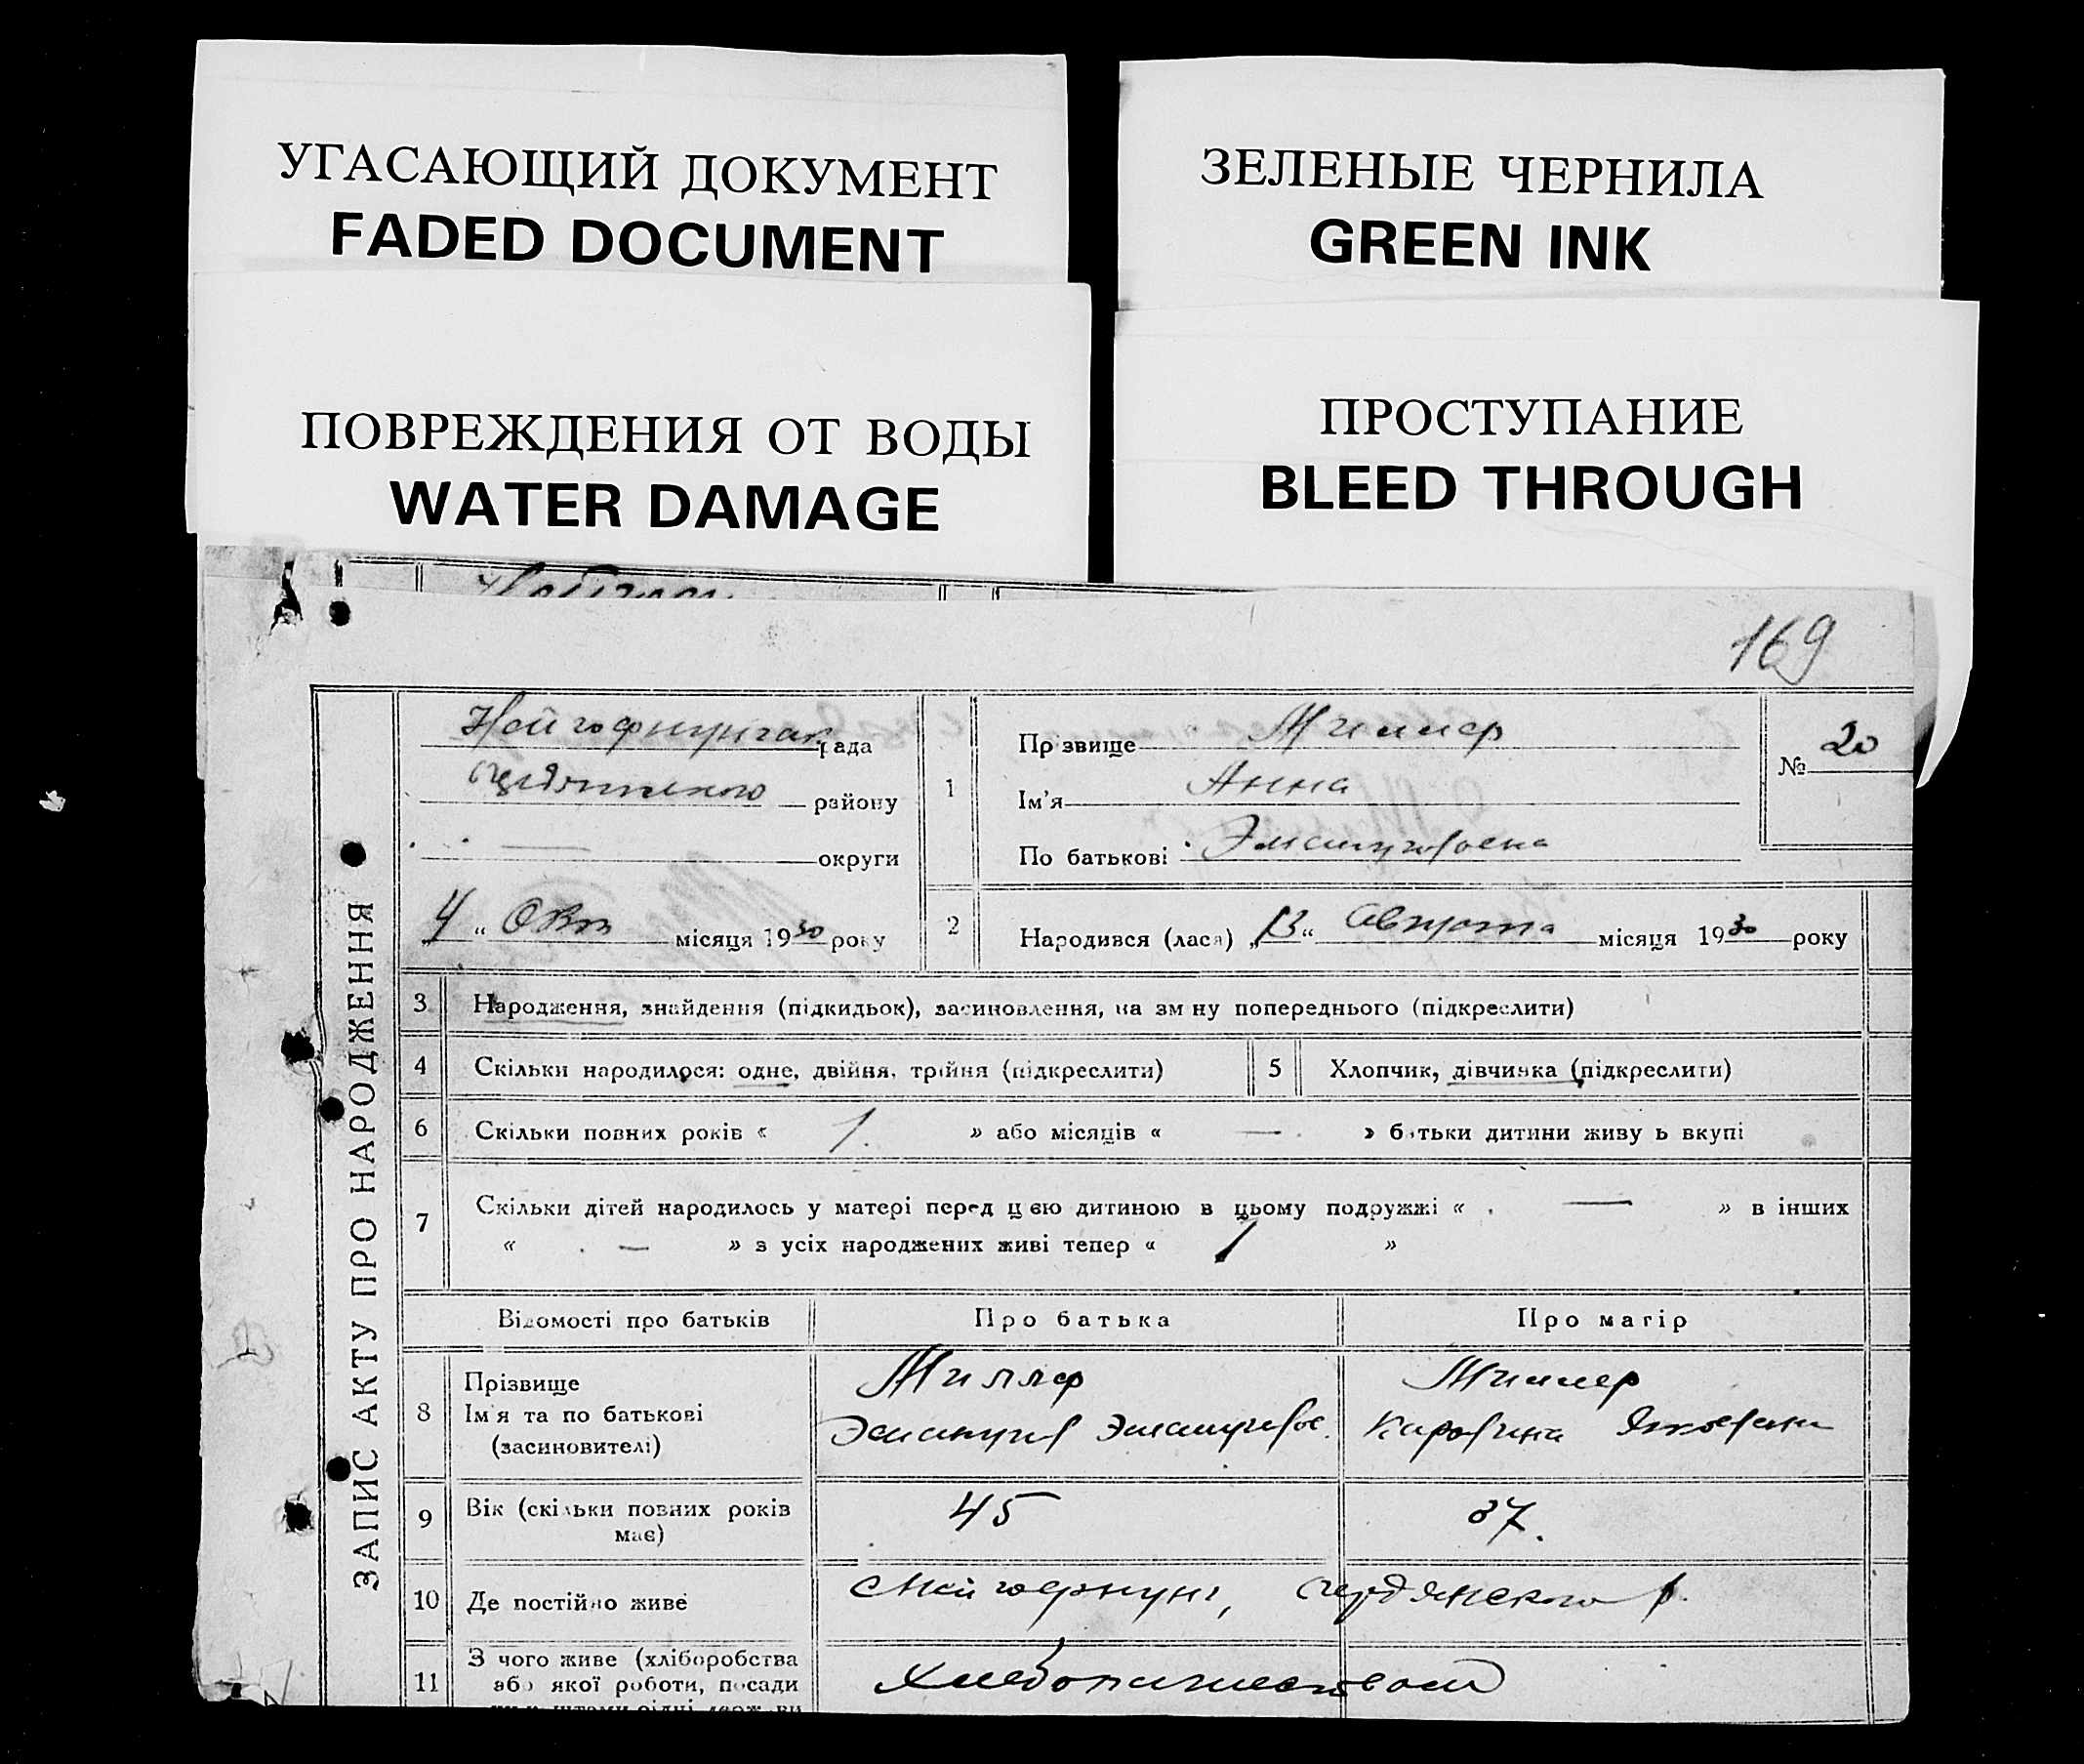 УГАСАЮЩИЙ ДОКУМЕНТ
FADED DOCUMENT
ЗЕЛЕНЫЕ ЧЕРНИЛА
GREEN INK
ПОВРЕЖДЕНИЯ ОТ ВОДЫ
WATER DAMAGE
ПРОСТУПАНИЕ
BLEED THROUGH
169
ЗАПИС АКТУ ПРО НАРОДЖЕННЯ
рада
району
округи
4 " Окт місяця 1930 року
1
Прізвище Миллер
Ім'я Анна
По батькові
№ 20
2 Народився (лася) „13“ Августа місяця 1930 року
3 Народження, знайдення (підкидьок), засиновлення, на зміну попереднього (підкреслити)
4 Скільки народилося: одне, двійня, трійня (підкреслити)
5 Хлопчик, дівчинка (підкреслити)
6 Скільки повних років « 1. » або місяців « — » батьки дитини живуть вкупі
7 Скільки дітей народилось у матері перед цією дитиною в цьому подружжі « — » в інших
« — » з усіх народжених живі тепер « 1 »
Відомості про батьків
Про батька
Про матір
8 Прізвище
Ім'я та по батькові
(засиновителі)
Миллер
Миллер
9 Вік (скільки повних років
має)
45
37.
10 Де постійно живе
р.
11 З чого живе (хліборобства
або якої роботи, посади